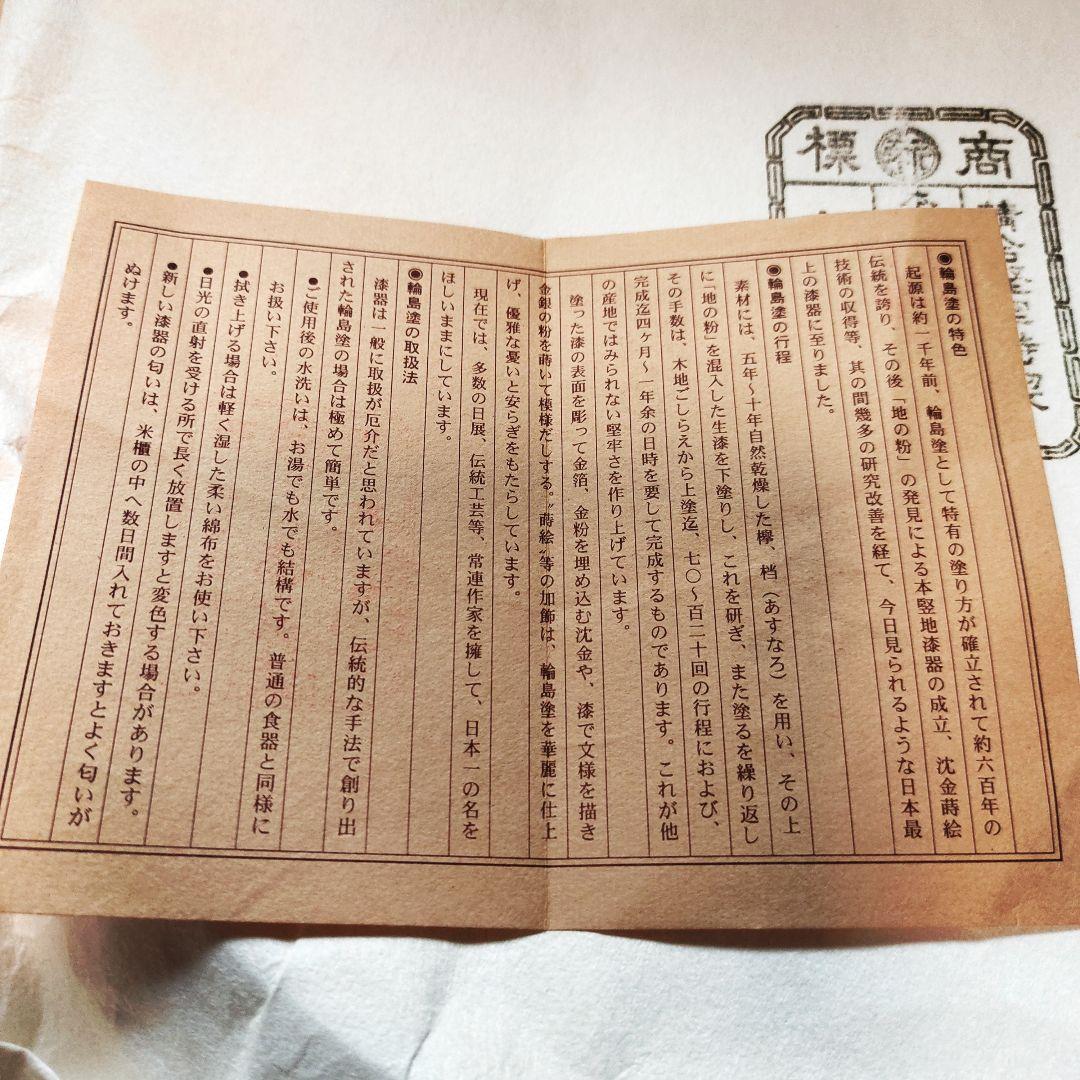 商標
◉輪島塗の特色
起源は約一千年前、輪島塗として特有の塗り方が確立されて約六百年の
伝統を誇り、その後「地の粉」の発見による本堅地漆器の成立、沈金蒔絵
技術の収得等、其の間幾多の研究改善を経て、今日見られるような日本最
上の漆器に至りました。
◉輪島塗の行程
素材には、五年〜十年自然乾燥した欅、档（あすなろ）を用い、その上
に「地の粉」を混入した生漆を下塗りし、これを研ぎ、また塗るを繰り返し
その手数は、木地ごしらえから上塗迄、七〇〜百二十回の行程におよび、
完成迄四ヶ月〜一年余の日時を要して完成するものであります。これが他
の産地ではみられない堅牢さを作り上げています。
塗った漆の表面を彫って金箔、金粉を埋め込む沈金や、漆で文様を描き
金銀の粉を蒔いて模様だしする〝蒔絵〟等の加飾は、輪島塗を華麗に仕上
げ、優雅な憂いと安らぎをもたらしています。
現在では、多数の日展、伝統工芸等、常連作家を擁して、日本一の名を
ほしいままにしています。
◉輪島塗の取扱法
漆器は一般に取扱が厄介だと思われていますが、伝統的な手法で創り出
された輪島塗の場合は極めて簡単です。
●ご使用後の水洗いは、お湯でも水でも結構です。普通の食器と同様に
お扱い下さい。
●拭き上げる場合は軽く湿した柔い綿布をお使い下さい。
●日光の直射を受ける所で長く放置しますと変色する場合があります。
●新しい漆器の匂いは、米櫃の中へ数日間入れておきますとよく匂いが
ぬけます。